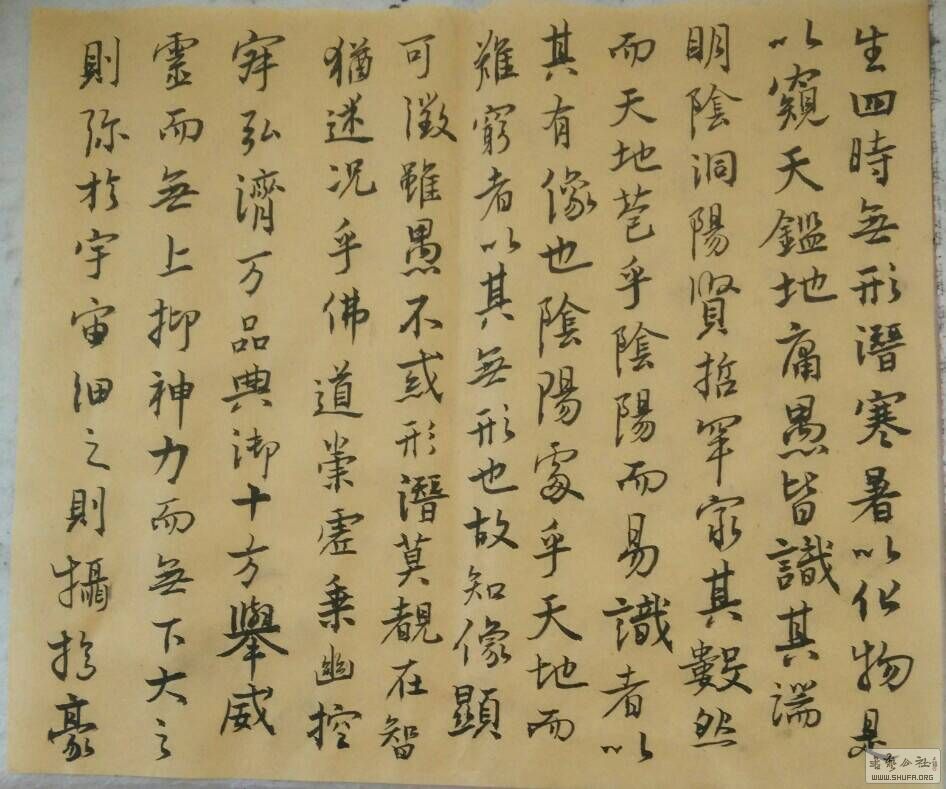 生四時無形潛寒暑以化物是
以窺天鑑地庸愚皆識其端
明陰洞陽賢哲罕窮其數然
而天地苞乎陰陽而易識者以
其有像也陰陽處乎天地而
難窮者以其無形也故知像顯
可徵雖愚不惑形潛莫覩在智
猶迷況乎佛道崇虛乘幽控
寂弘濟万品典御十方舉威
靈而無上抑神力而無下大之
則弥於宇宙細之則攝於豪
WWW.SHUFA.ORG